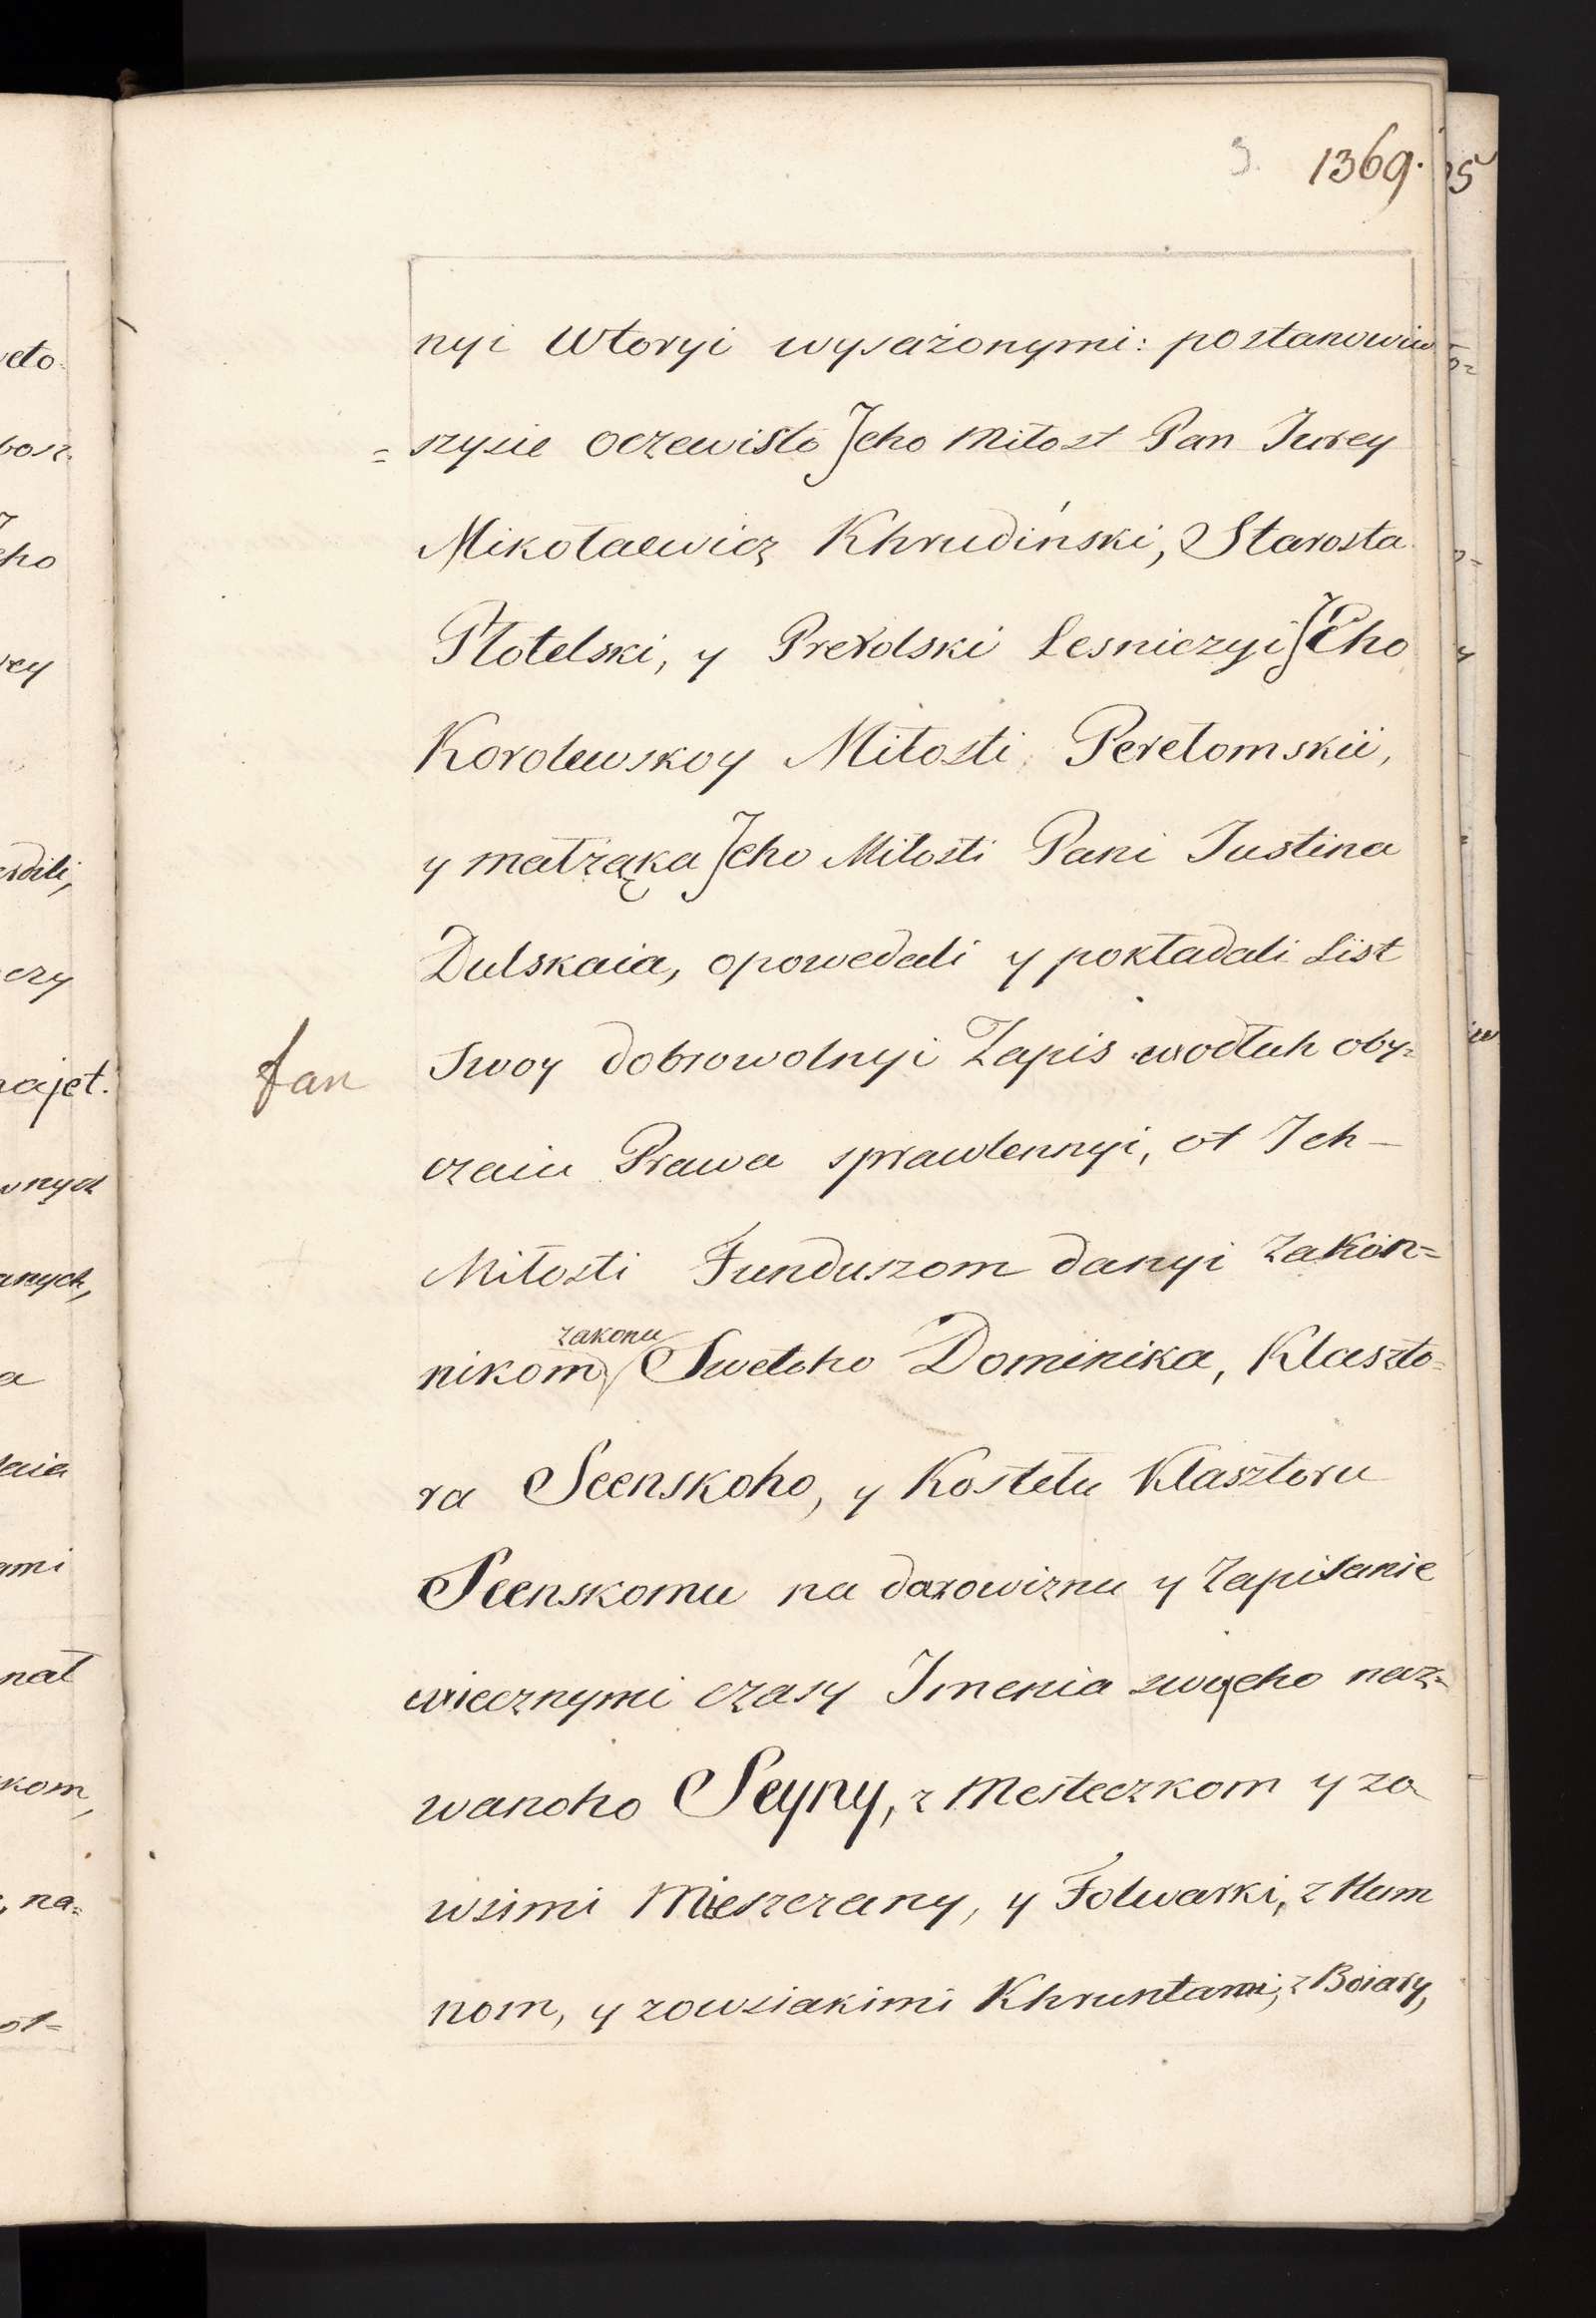 3. 1369.
nyi Wtoryi wysażonymi: postanowiw
= szysie oczewisto Jeho Miłost Pan Jurey
Mikołaewicz Khrudiński, Starosta
Płotelski, y Prerolski Lesniczyi Jeho
Korolewskoy Miłosti Perełomskii,
y małżąka Jeho Miłosti Pani Justina
Dulskaia, opowedali y pokładali List
Swoy dobrowolnyi Zapis wodłuh oby=
fan
czaiu Prawa sprawlennyi, ot Ich –
Miłosti Funduszom danyi zakon=
zakonu
nikom Swetoho Dominika, Klaszto=
ra Seenskoho, y Kostełu Klasztoru
Seenskomu na darowiznu y Zapisanie
wiecznymi czasy Imenia swoeho naz=
wanoho Seyny, z Mesteczkom y zo
wsimi Mieszczany, y Folwarki, z Hum
nom, y zowsiakimi Khruntami, z Boiary,